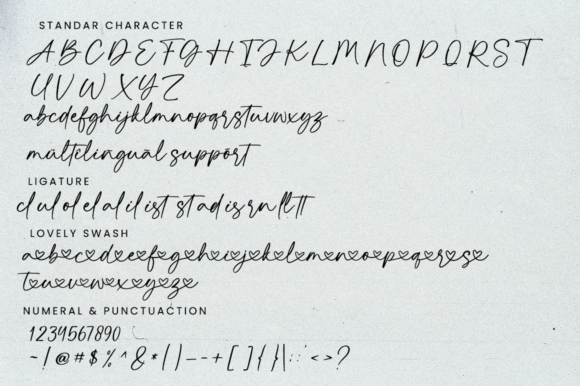 STANDAR CHARACTER
A B C D E F G H I J K L M N O P Q R S T
U V W X Y Z
abcdefghijklmnopqrstuvwxyz
mùltïlíngùãl support
LIGATURE
cl ul ol el al il ist st ad is rn ll tt
LOVELY SWASH
a b c d e f g h i j k l m n o p q r s
t u v w x y z
NUMERAL & PUNCTUACTION
1234567890
~ ! @ # $ % ^ & * ( ) - – + [ ] { } | : ; < > ?